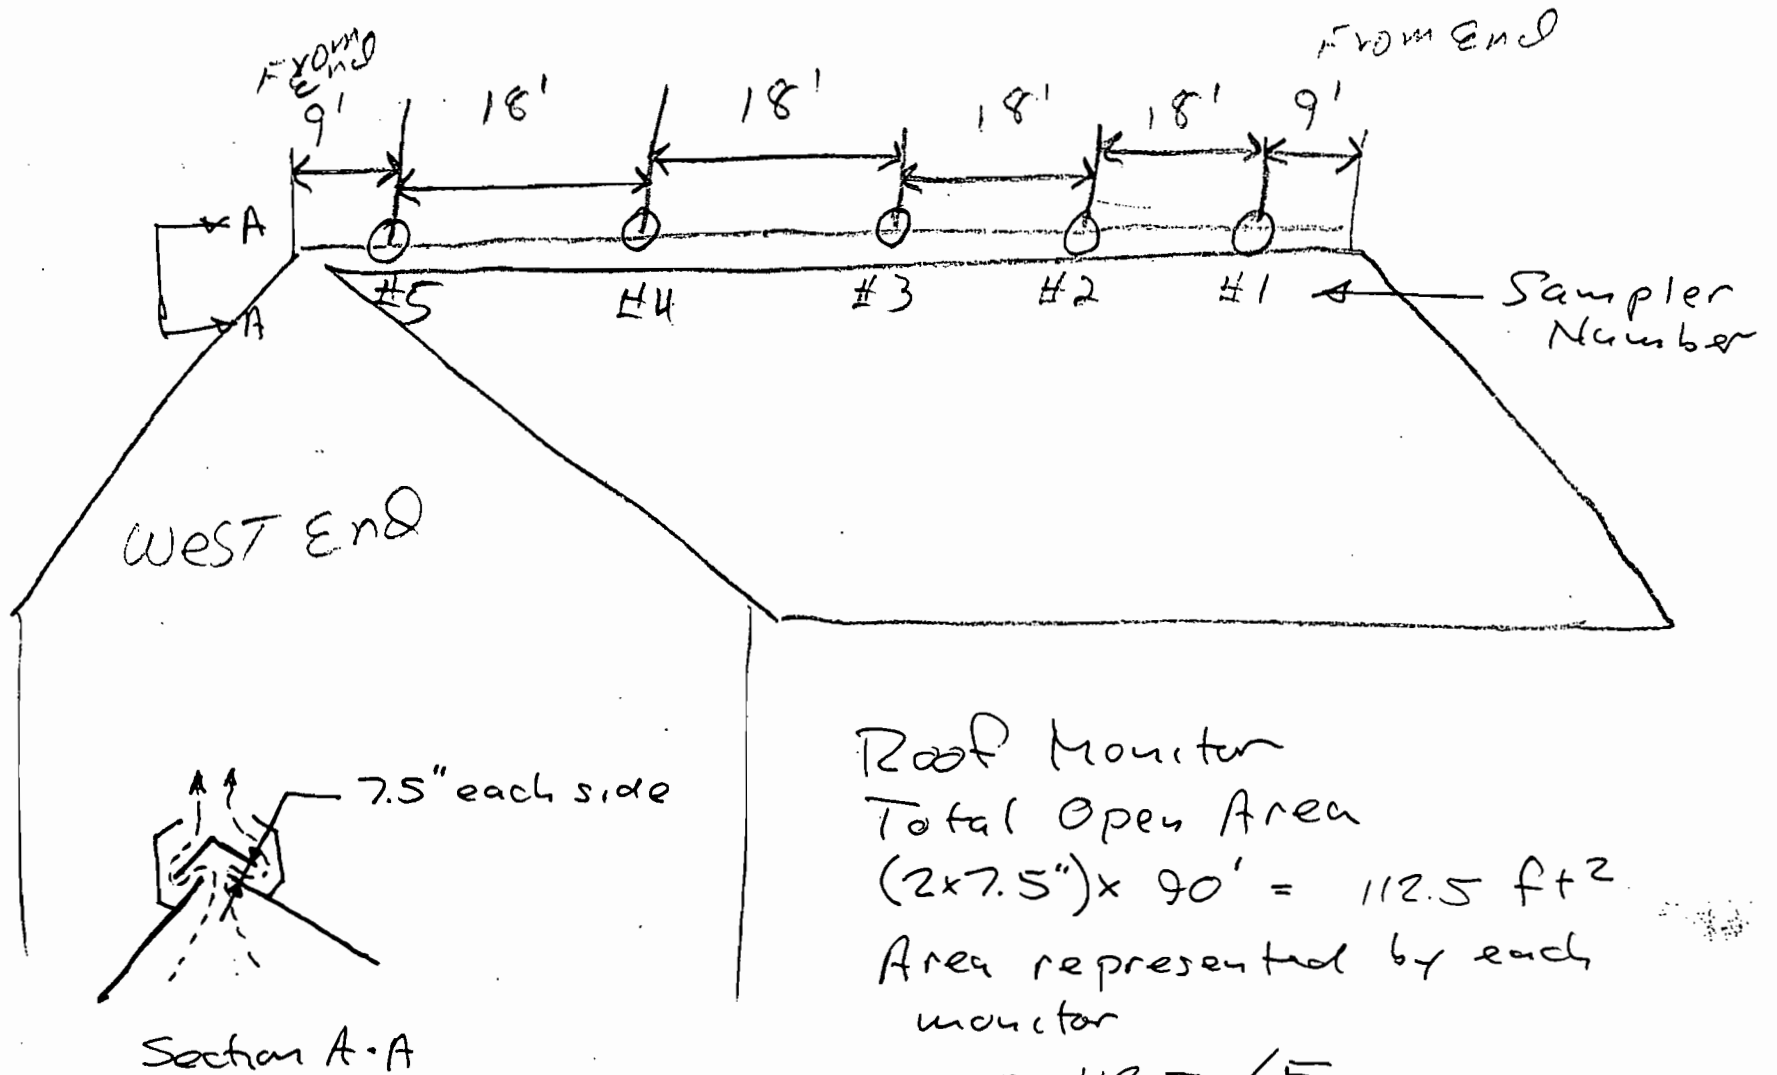 From End
From End
9' 18' 18' 18' 18' 9'
A
#5 #4 #3 #2 #1
Sampler
Number
A
West End
7.5" each side
Roof Monitor
Total Open Area
(2x7.5")x 90' = 112.5 ft2
Area represented by each
monitor
Section A-A